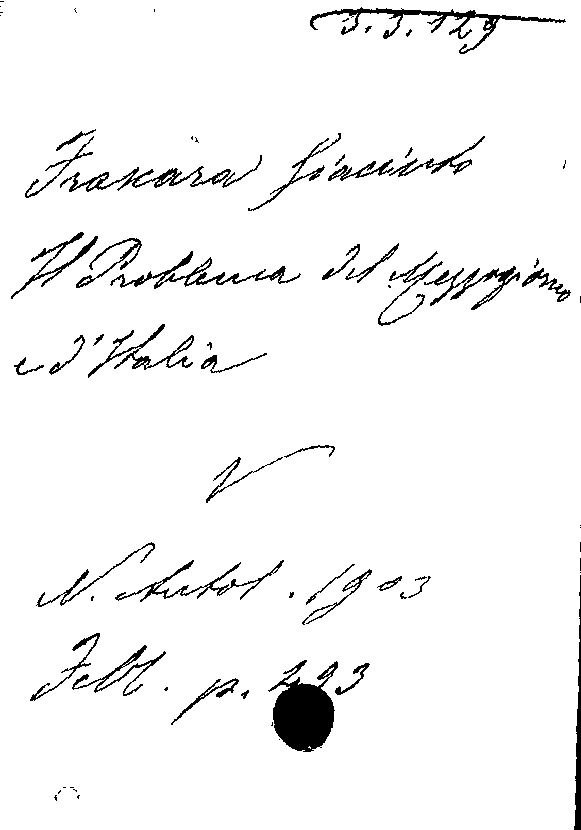 3.3.129
Frascara Giacinto
Il Problema del Mezzogiorno
e d'Italia
N. Antol. 1903
Febb. p. 293